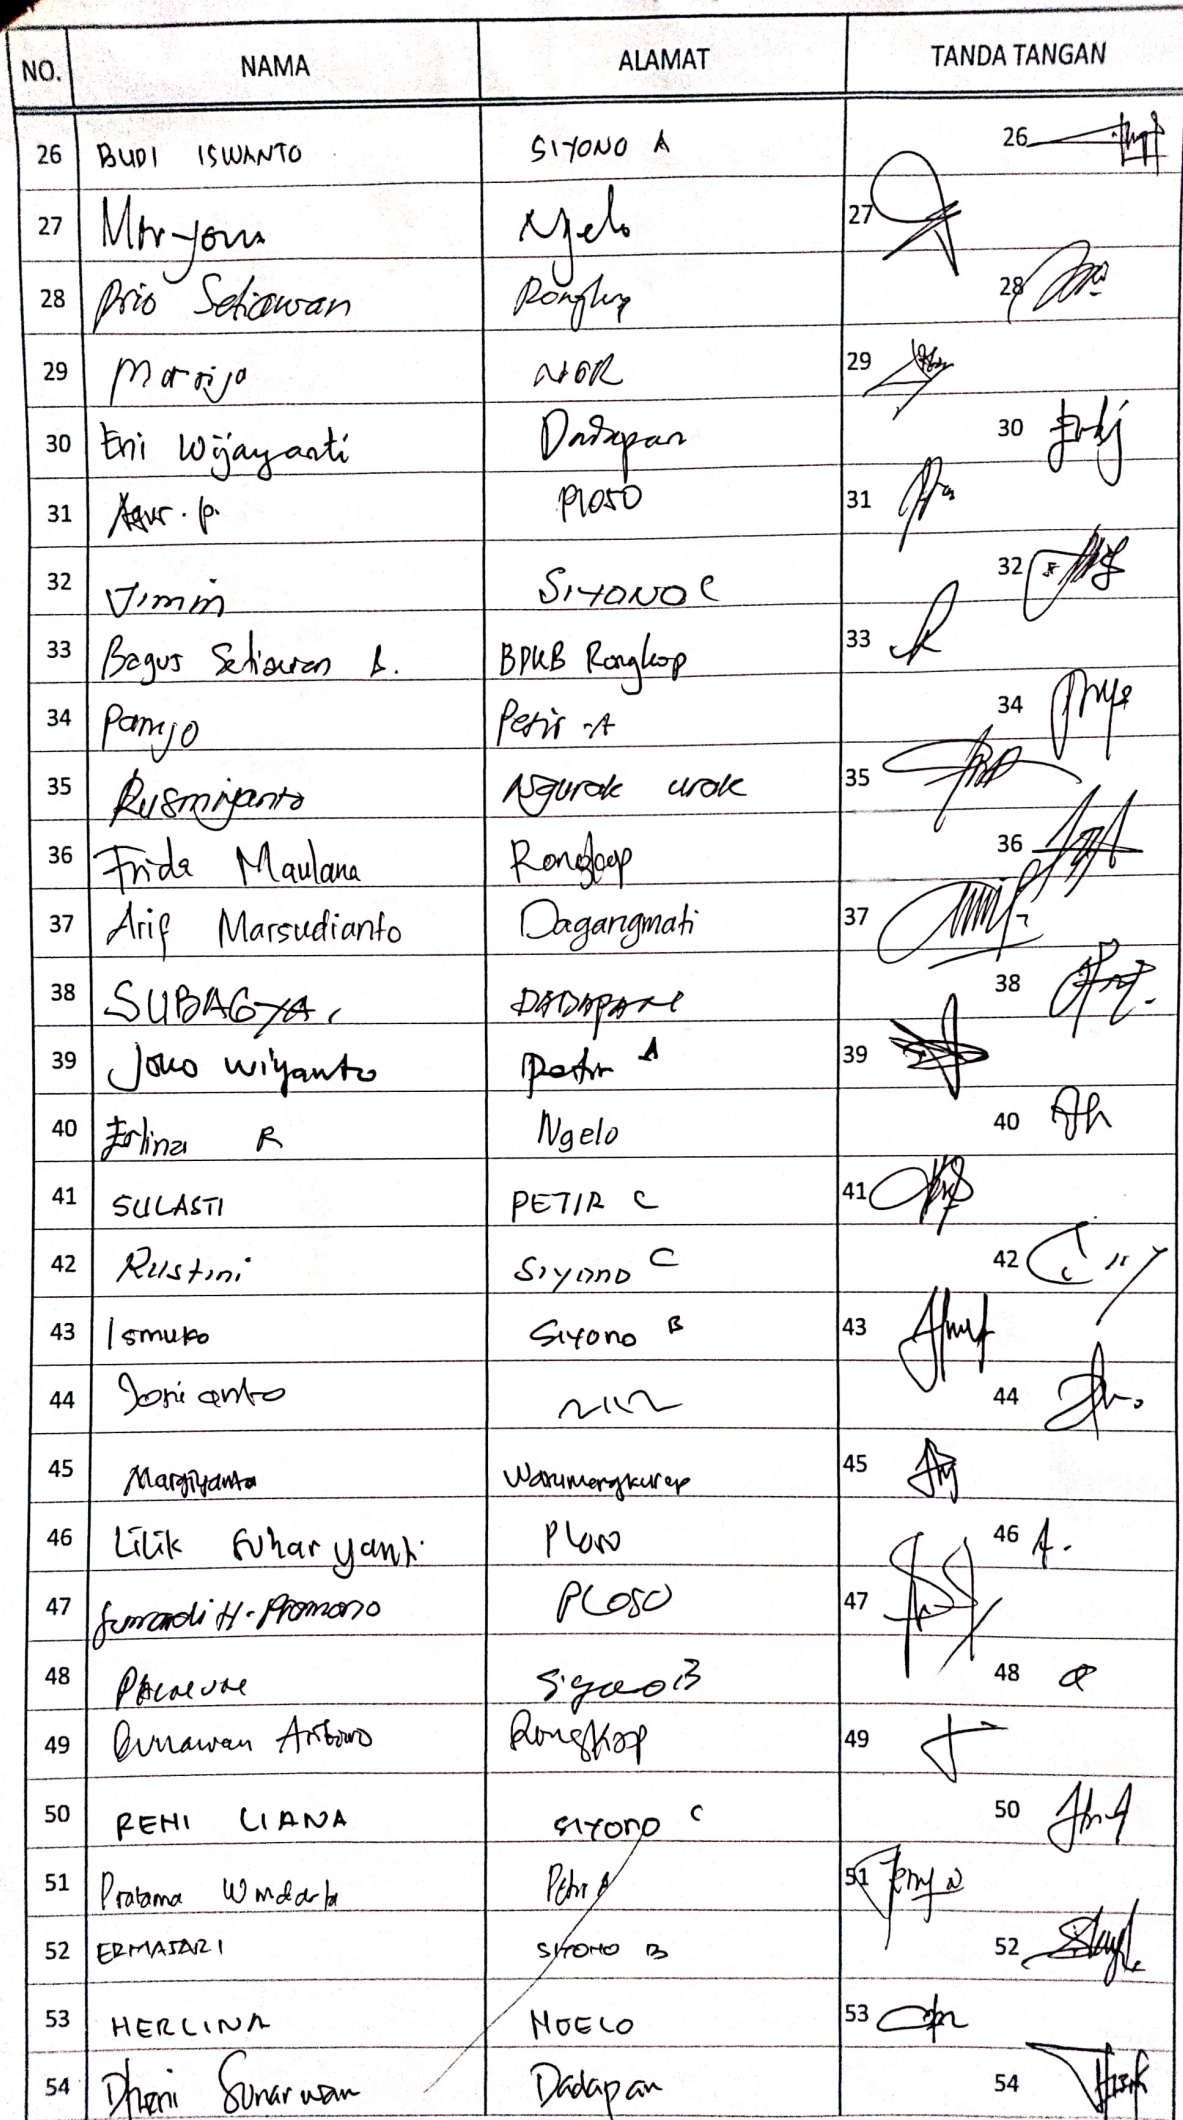 NO. NAMA ALAMAT TANDA TANGAN
26 BUDI ISWANTO SIYONO A 26
27 Maryono Ngelo 27
28 Prio Setiawan Rongkop 28
29 Marijo NGR 29
30 Eni Wijayanti Dadapan 30
31 Agus. P. Ploso 31
32 Jimin SIYONO C 32
33 Bagus Setiawan A. BPKB Rongkop 33
34 Parijo Petir -A 34
35 Rusmiyanto Ngurak urak 35
36 Frida Maulana Rongkop 36
37 Arif Marsudianto Dagangmati 37
38 SUBAGYA. DADAPAN 38
39 Joko wiyanto Petir A 39
40 Erlina R Ngelo 40
41 SULASTI PETIR C 41
42 Rustini Siyono C 42
43 Ismuko Siyono B 43
44 44
45 Margiyanto Warumengkurep 45
46 Lilik Suharyanti Ploso 46
47 Sumardi H. Pramono PLOSO 47
48 Siyono B 48
49 Gunawan Antoro Rongkop 49
50 RENI LIANA SIYONO C 50
51 Pratama Windarta Petir A 51
52 ERMASARI SIYONO B 52
53 HERLINA NGELO 53
54 Dheni Sunarwan Dadapan 54